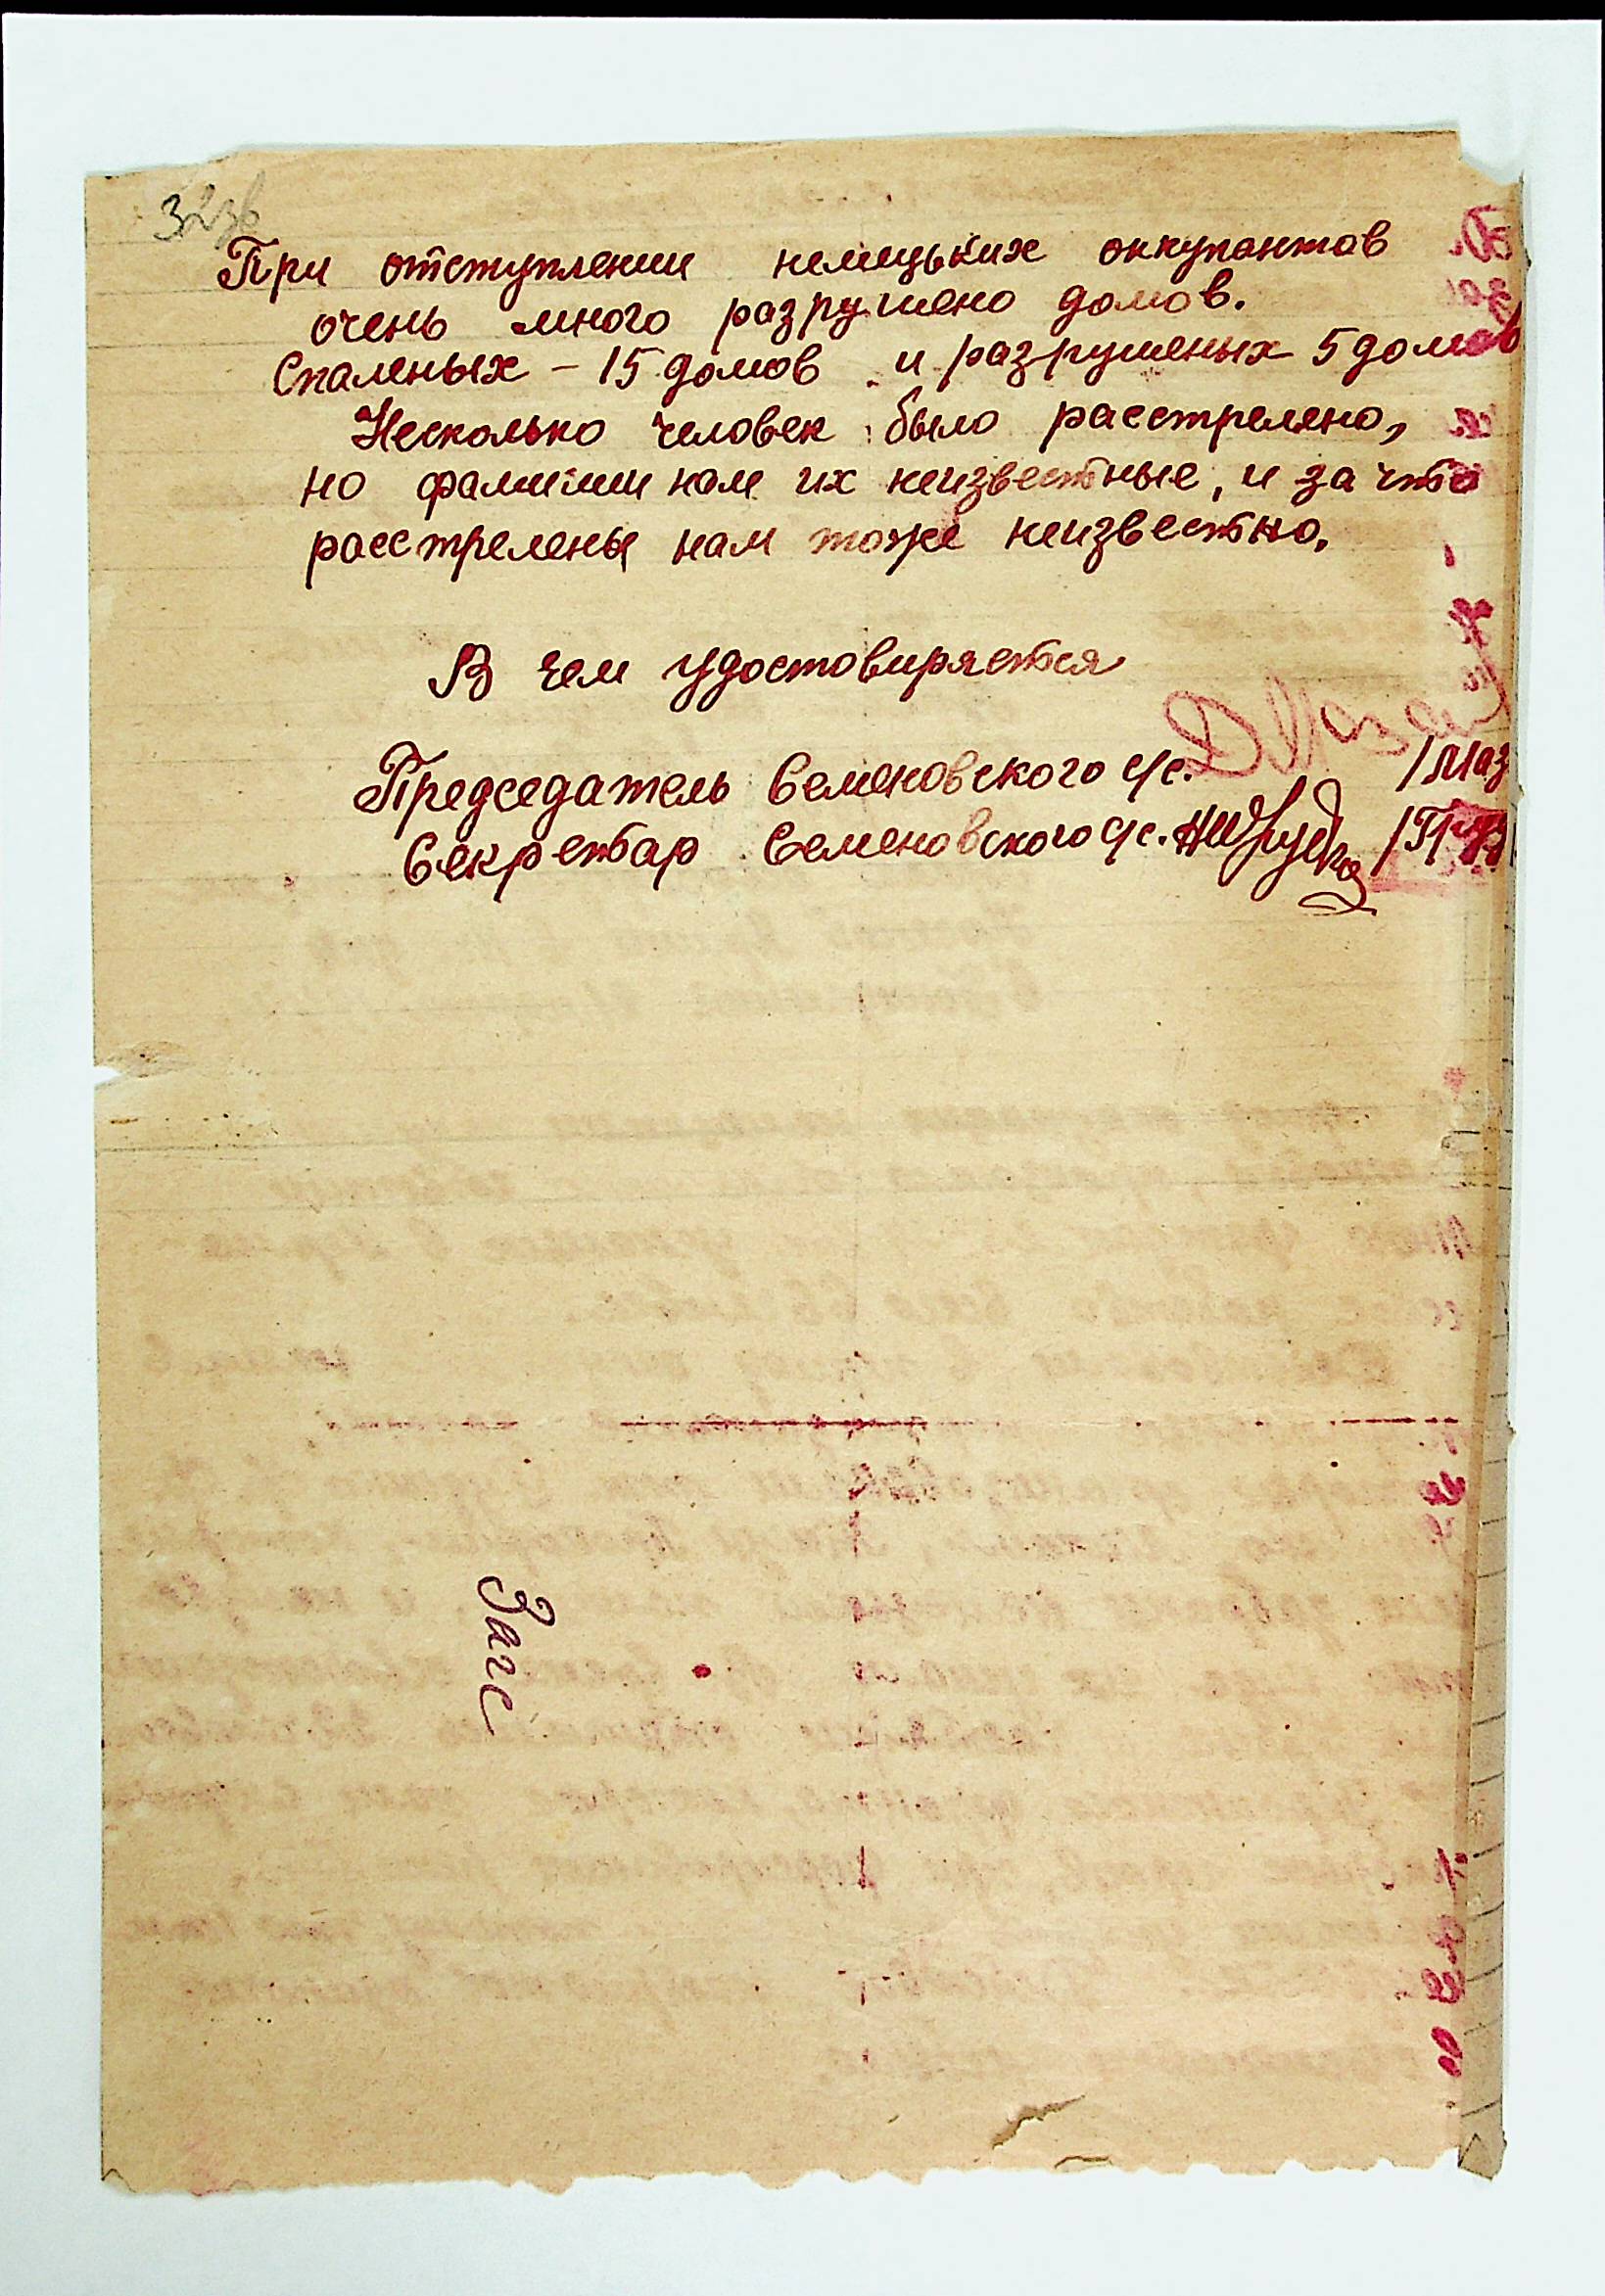 32зв
При отступлении немицьких оккупантов
очень много разрушено домов.
Спаленых – 15 домов и разрушеных 5 домов
Несколько человек было расстреляно,
но фамилии нам их неизвестные, и за что
расстрелены нам тоже неизвестно.
В чем удостовиряется
Председатель Семеновского с/с. /Маз
Секретар Семеновского с/с. /Гру
Загс